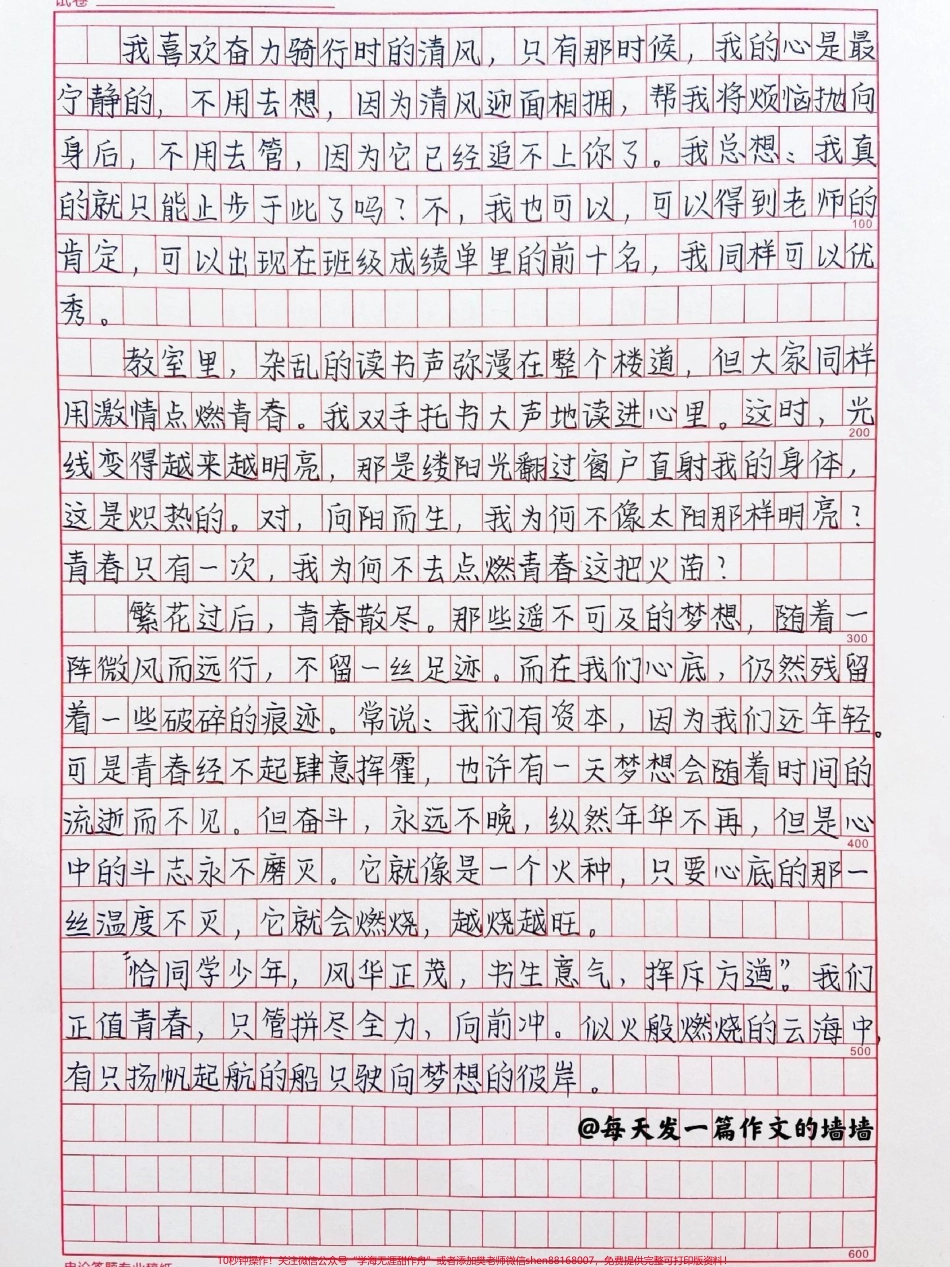 试卷
我喜欢奋力骑行时的清风，只有那时候，我的心是最
宁静的，不用去想，因为清风迎面相拥，帮我将烦恼抛向
身后，不用去管，因为它已经追不上你了。我总想：我真
的就只能止步于此了吗？不，我也可以，可以得到老师的
100
肯定，可以出现在班级成绩单里的前十名，我同样可以优
秀。
教室里，杂乱的读书声弥漫在整个楼道，但大家同样
用激情点燃青春。我双手托书大声地读进心里。这时，光
200
线变得越来越明亮，那是缕阳光翻过窗户直射我的身体，
这是炽热的。对，向阳而生，我为何不像太阳那样明亮？
青春只有一次，我为何不去点燃青春这把火苗？
繁花过后，青春散尽。那些遥不可及的梦想，随着一
300
阵微风而远行，不留一丝足迹。而在我们心底，仍然残留
着一些破碎的痕迹。常说：我们有资本，因为我们还年轻。
可是青春经不起肆意挥霍，也许有一天梦想会随着时间的
流逝而不见。但奋斗，永远不晚，纵然年华不再，但是心
400
中的斗志永不磨灭。它就像是一个火种，只要心底的那一
丝温度不灭，它就会燃烧，越烧越旺。
“恰同学少年，风华正茂，书生意气，挥斥方遒”。我们
正值青春，只管拼尽全力、向前冲。似火般燃烧的云海中，
500
有只扬帆起航的船只驶向梦想的彼岸。
@每天发一篇作文的墙墙
600
申论答题专业稿纸
10秒钟操作！关注微信公众号“学海无涯甜作舟”或者添加樊老师微信shen88168007，免费提供完整可打印版资料！